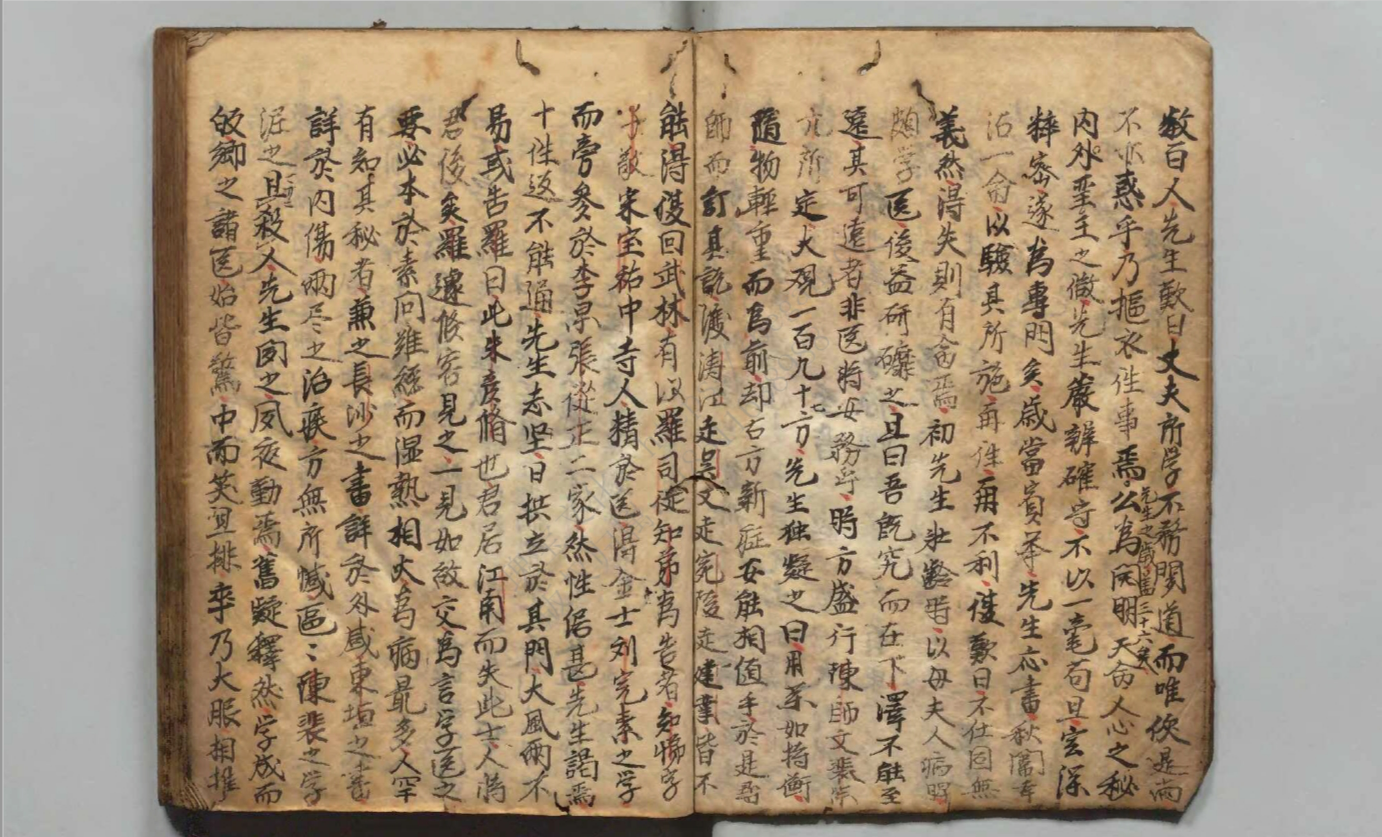 數百人先生歎曰丈夫所学不務聞道而唯俠是尚
不亦惑乎乃摳衣徃事焉先生之歲蓋三十六矣公為開明天命人心之秘
内外聖王之微先生嚴辨確守不以一毫苟且宏深
粹密遂為專門矣歲當賓荐先生応書秋闈幸
沾一命以驗其所施再徃再不利復歎曰不仕固無
義然得失則有命焉初先生壮齡時以母夫人病脾
頗学医後益研礳之且曰吾既究而在下澤不能至
遠其可遠者非医將安務乎時方盛行陳師文裴宗
元所定大观一百九十七方先生独疑之曰用薬如持衡
随物輕重而為前却古方新症安能相值乎於是尋
師而訂其説渡濤江走吳又走宛陵走建業皆不
能得復回武林有以羅司徒知弟為告者知悌字
子敬宋宝祐中寺人精於医得金士刘完素之学
而旁參於李杲張從正二家然性倨甚先生謁焉
十徃返不能通先生志坚日拱立於其門大風雨不
易或告羅曰此朱彦脩也君居江南而失此士人將
君後矣羅遽修容見之一見如故交為言学医之
要必本於素问难經而湿熱相火為病最多人罕
有知其秘者兼之長沙之書詳於外感東垣之書
詳於内傷兩尽之治疾方無所憾區〻陳裴之学
泥之且殺人先生聞之夙夜動焉舊疑釋然学成而
皈鄉之諸医始皆驚中而笑且排卒乃大服相推